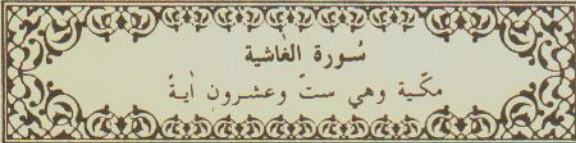 سُورة الغاشية
مكّية وهي ستّ وعشرون أيةً